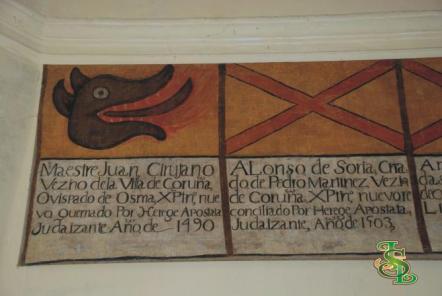 Maestre Juan Cirujano
Vezino de la Villa de Coruña,
Ovispado de Osma, XPin, nue
vo Quemado Por Herege Apostata
Judaizante Año de 1490
ALonso de Soria, Cria
do de Pedro Martinez Vezi
de Coruña, XPin, nuevo re
conciliado Por Herege Apostata,
Judaizante, Año de 1503,